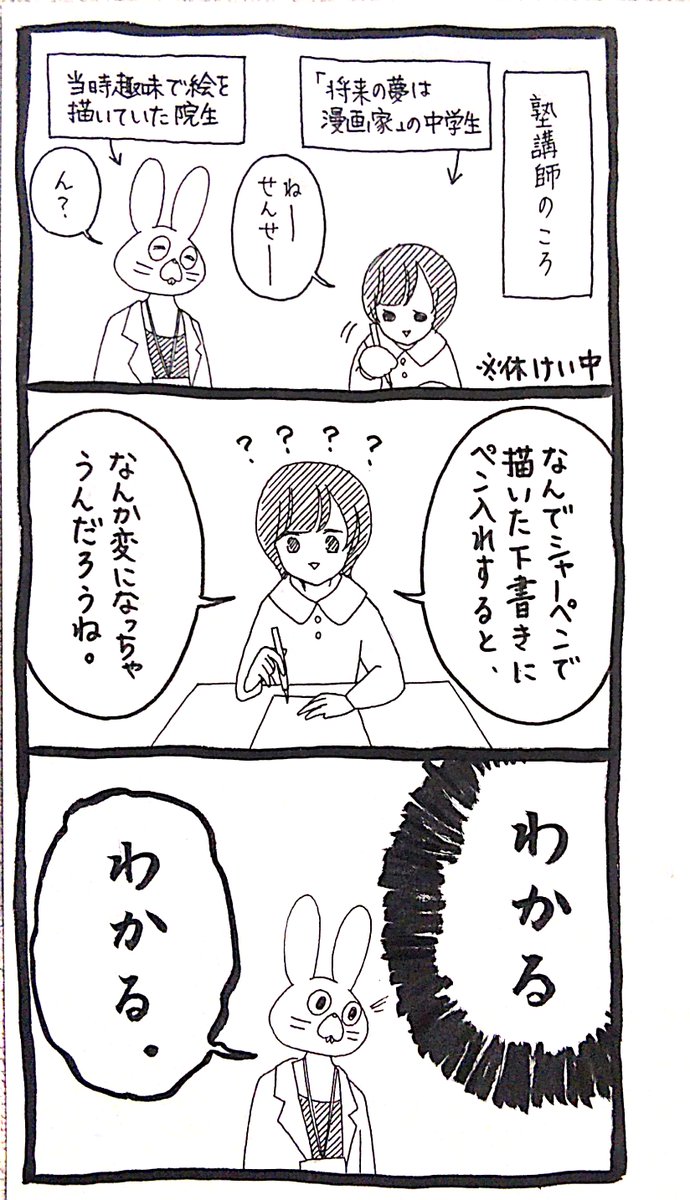 塾講師のころ
「将来の夢は
漫画家」の中学生
ねー
せんせー
当時趣味で絵を
描いていた院生
ん？
※休けい中
なんでシャーペンで
描いた下書きに
ペン入れすると、
? ? ? ?
なんか変になっちゃ
うんだろうね。
わかる
わかる。